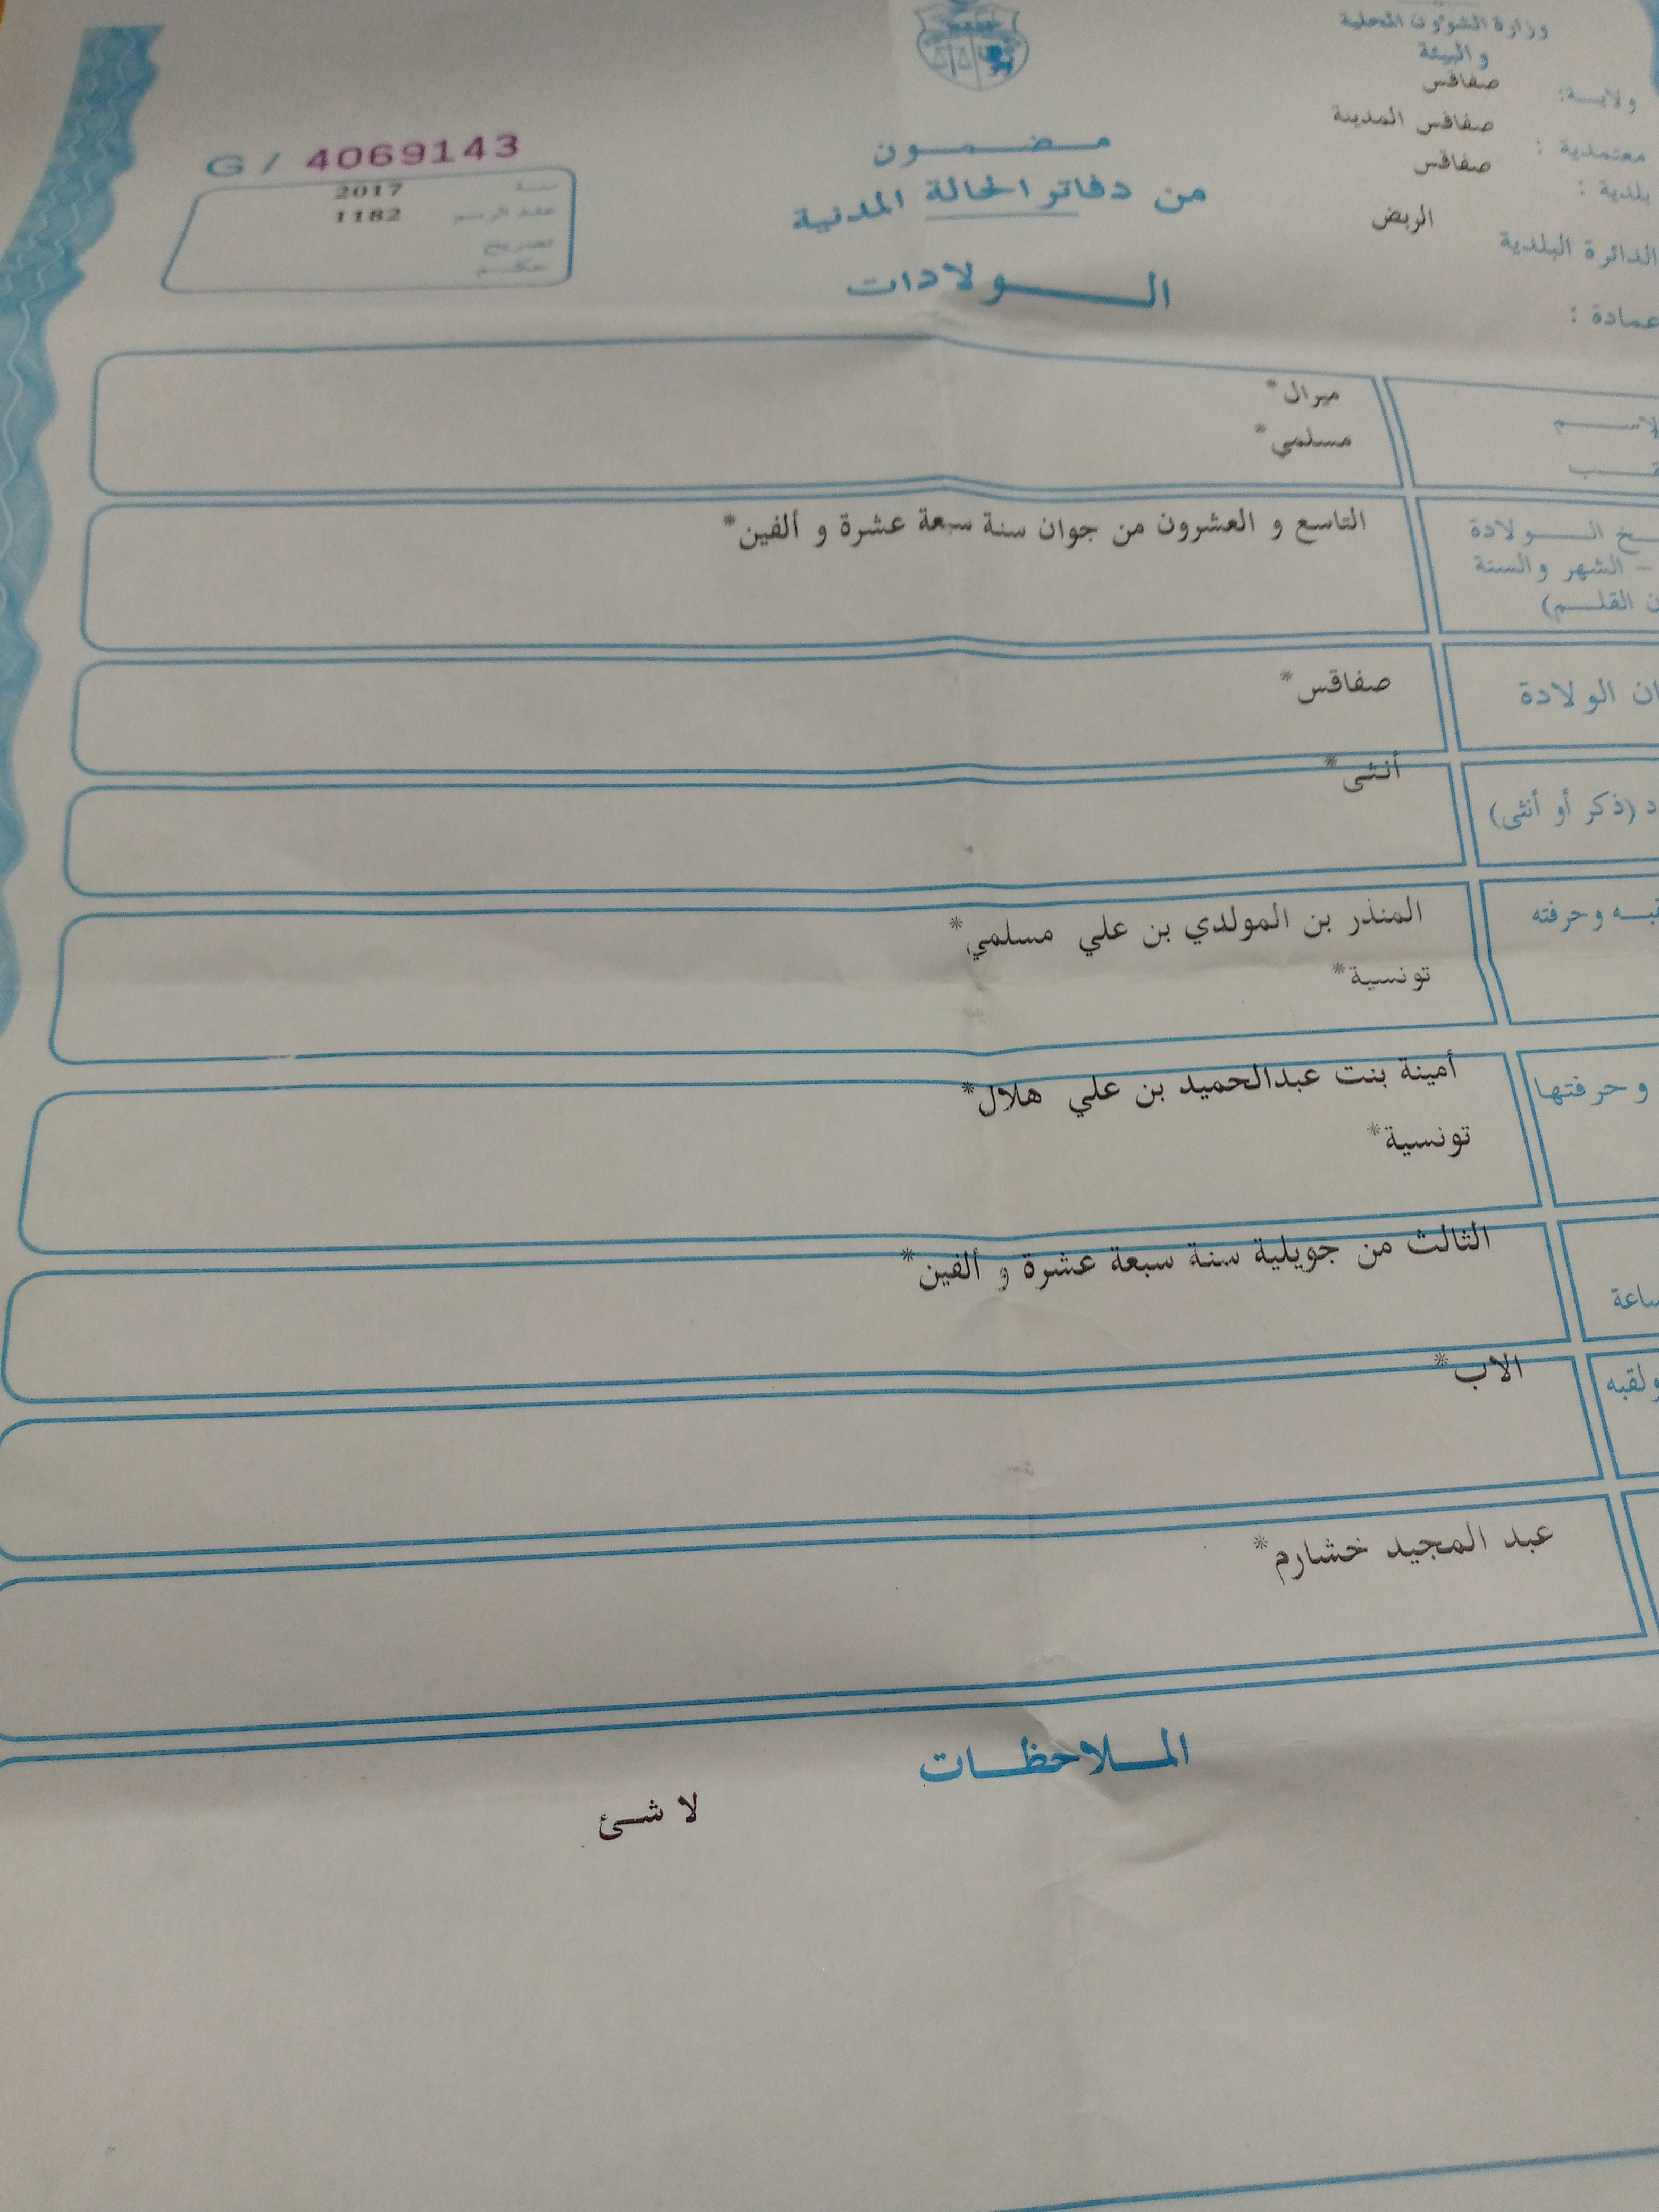 وزارة الشؤون المحلية
و البيئة
ولاية: صفاقس
معتمدية : صفاقس المدينة
بلدية : صفاقس
الدائرة البلدية الربض
عمادة :
مضمون
من دفاتر الحالة المدنية
الولادات
G / 4069143
سنة 2017
عدد الرسم 1182
تصريح
حكم
ميرال*
مسلمي*
الولادة التاسع و العشرون من جوان سنة سبعة عشرة و ألفين*
- الشهر والسنة
القلم)
الولادة صفاقس*
(ذكر أو أنثى) أنثى*
وحرفته المنذر بن المولدي بن علي مسلمي*
تونسية*
و حرفتها أمينة بنت عبدالحميد بن علي هلال*
تونسية*
الثالث من جويلية سنة سبعة عشرة و ألفين*
ولقبه الاب*
عبد المجيد خشارم*
الملاحظات
لا شئ